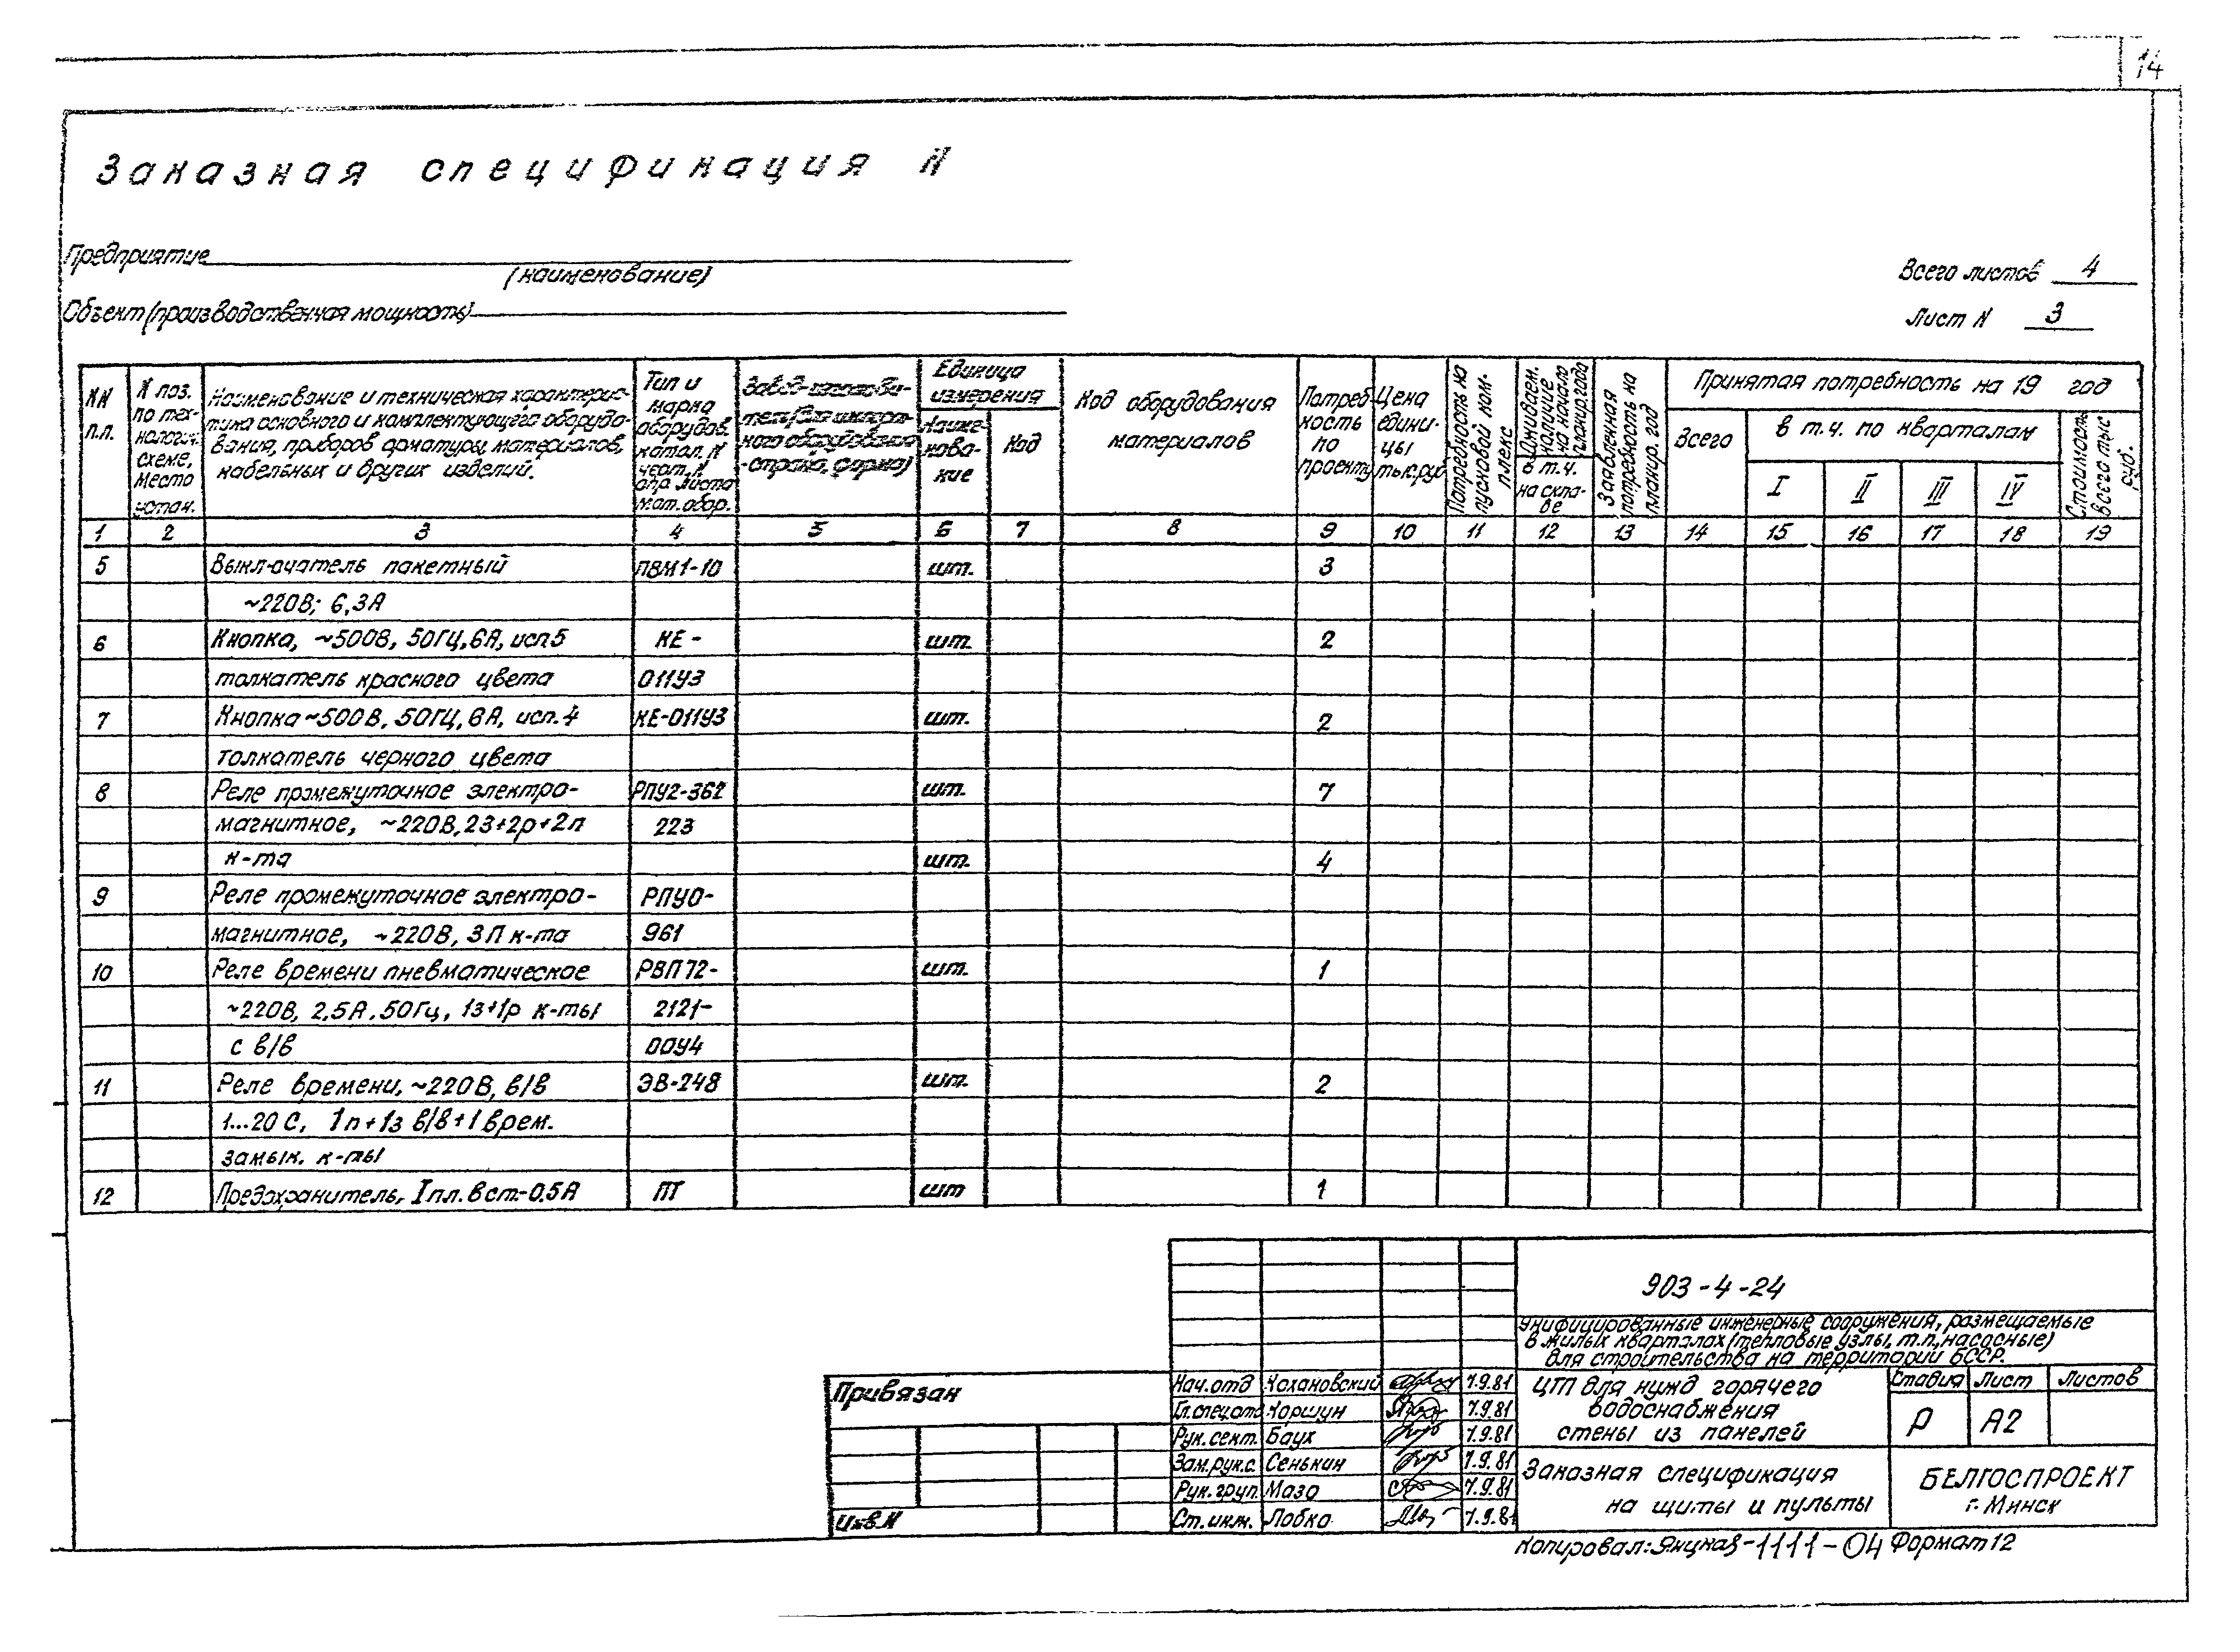 14
Заказная спецификация N
Предприятие
(наименование)
Всего листов 4
Объект (производственная мощность)
Лист N 3
NN п.п.
N поз. по технологич. схеме, место устан.
Наименование и техническая характерис-
тика основного и комплектующего оборудо-
вания, приборов арматуры, материалов,
кабельных и других изделий.
Тип и
марка
оборудов.
катал. N
черт. N
опр. листа
мат. обор.
Завод-изготови-
тель (для импорт-
ного оборудования
-страна, фирма)
Единица
измерения
Наиме-
нова-
ние
Код
Код оборудования
материалов
Потреб
ность
по
проекту
Цена
едини-
цы
тыс.руб
Потребность на
пусковой ком-
плекс
Ожидаем.
наличие
на начало
планир.года
в т.ч.
на скла-
де
Заявленная
потребность на
планир. год
Принятая потребность на 19 год
Всего
в т.ч. по кварталам
I II III IV
Стоимость
всего тыс
руб.
1 2 3 4 5 6 7 8 9 10 11 12 13 14 15 16 17 18 19
5 Выключатель пакетный ПВМ1-10 шт. 3
~220В; 6,3А
6 Кнопка, ~500В, 50ГЦ,6А, исп5 КЕ - шт. 2
толкатель красного цвета 011У3
7 Кнопка ~500В, 50ГЦ, 6А, исп. 4 КЕ-011У3 шт. 2
толкатель черного цвета
8 Реле промежуточное электро- РПУ2-362 шт. 7
магнитное, ~220В, 2з+2р+2п 223
к-та шт. 4
9 Реле промежуточное электро- РПУ0-
магнитное, ~220В, 3П к-та 961
10 Реле времени пневматическое РВП72- шт. 1
~220В, 2,5А. 50Гц, 1з+1р к-ты 2121-
с в/в 00У4
11 Реле времени, ~220В, в/в ЭВ-248 шт. 2
1...20 С, 1п+1з в/в+1 врем.
замык. к-ты
12 Предохранитель, Iпл. вст-0,5А ПТ шт 1
903-4-24
Унифицированные инженерные сооружения, размещаемые
в жилых кварталах (тепловые узлы, т.п., насосные)
для строительства на территории БССР.
Привязан
Инв.N
Нач.отд Кохановский 7.9.81
Гл.спец.отд Коршун 7.9.81
Рук. сект. Баух 7.9.81
Зам.рук.с. Сенькин 7.9.81
Рук. груп. Мазо 7.9.81
Ст.инж. Лобко 7.9.81
ЦТП для нужд горячего
водоснабжения
стены из панелей
Стадия Лист Листов
Р А2
Заказная спецификация
на щиты и пульты
БЕЛГОСПРОЕКТ
г. Минск
Копировал: -1111-04 Формат 12